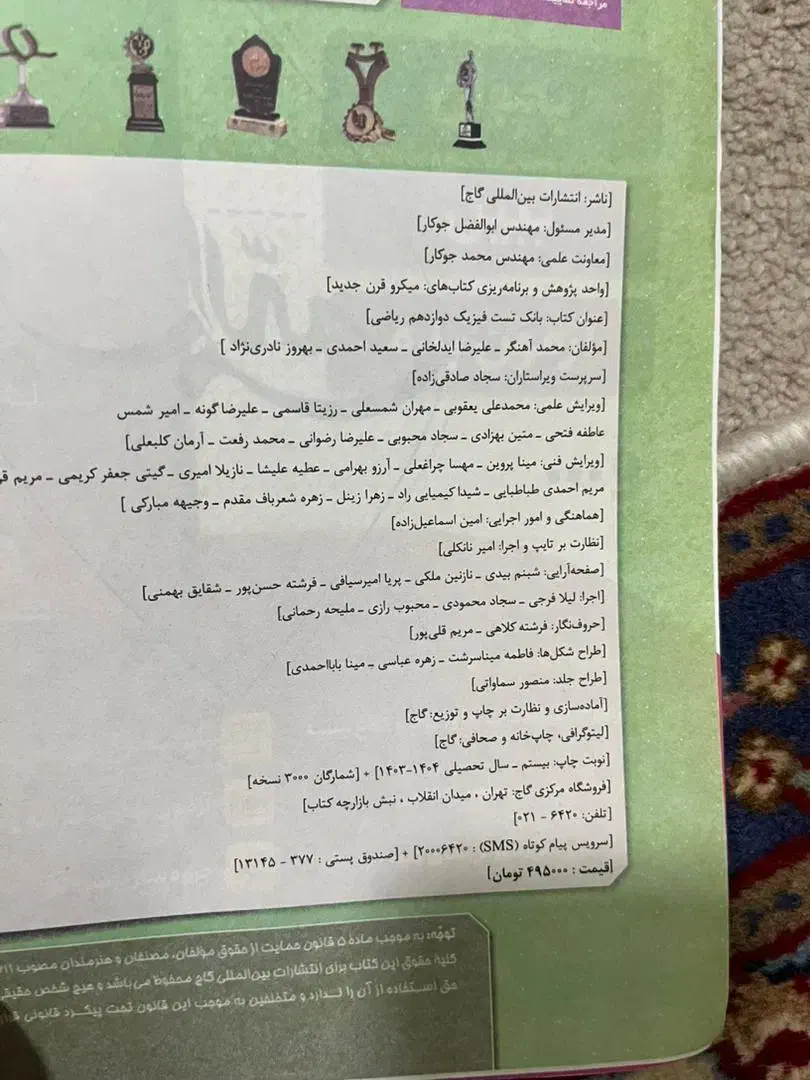 مراجعه نمایید
[ناشر: انتشارات بین‌المللی گاج]
[مدیر مسئول: مهندس ابوالفضل جوکار]
[معاونت علمی: مهندس محمد جوکار]
[واحد پژوهش و برنامه‌ریزی کتاب‌های: میکرو قرن جدید]
[عنوان کتاب: بانک تست فیزیک دوازدهم ریاضی]
[مؤلفان: محمد آهنگر ـ علیرضا ایدلخانی ـ سعید احمدی ـ بهروز نادری‌نژاد ]
[سرپرست ویراستاران: سجاد صادقی‌زاده]
[ویرایش علمی: محمدعلی یعقوبی ـ مهران شمسعلی ـ رزیتا قاسمی ـ علیرضا گونه ـ امیر شمس
عاطفه فتحی ـ متین بهزادی ـ سجاد محبوبی ـ علیرضا رضوانی ـ محمد رفعت ـ آرمان کلبعلی]
[ویرایش فنی: مینا پروین ـ مهسا چراغعلی ـ آرزو بهرامی ـ عطیه علیشا ـ نازیلا امیری ـ گیتی جعفر کریمی ـ مریم
مریم احمدی طباطبایی ـ شیدا کیمیایی راد ـ زهرا زینل ـ زهره شعرباف مقدم ـ وجیهه مبارکی ]
[هماهنگی و امور اجرایی: امین اسماعیل‌زاده]
[نظارت بر تایپ و اجرا: امیر نانکلی]
[صفحه‌آرایی: شبنم بیدی ـ نازنین ملکی ـ پریا امیرسیافی ـ فرشته حسن‌پور ـ شقایق بهمنی]
[اجرا: لیلا فرجی ـ سجاد محمودی ـ محبوب رازی ـ ملیحه رحمانی]
[حروف‌نگار: فرشته کلاهی ـ مریم قلی‌پور]
[طراح شکل‌ها: فاطمه میناسرشت ـ زهره عباسی ـ مینا بابااحمدی]
[طراح جلد: منصور سماواتی]
[آماده‌سازی و نظارت بر چاپ و توزیع: گاج]
[لیتوگرافی، چاپ‌خانه و صحافی: گاج]
[نوبت چاپ: بیستم ـ سال تحصیلی ۱۴۰۴-۱۴۰۳] + [شمارگان ۳۰۰۰ نسخه]
[فروشگاه مرکزی گاج: تهران ، میدان انقلاب ، نبش بازارچه کتاب]
[تلفن: ۶۴۲۰ - ۰۲۱]
[سرویس پیام کوتاه (SMS) : ۲۰۰۰۶۴۲۰] + [صندوق پستی : ۳۷۷ - ۱۳۱۴۵]
[قیمت : ۴۹۵۰۰۰ تومان]
توجّه: به موجب مادهٔ ۵ قانون حمایت از حقوق مؤلفان، مصنفان و هنرمندان مصوب
کلیهٔ حقوق این کتاب برای انتشارات بین‌المللی گاج محفوظ می‌باشد و هیچ شخص
حق استفاده از آن را نـدارد و متخلفین به موجب این قانون تحت پیگـرد قانونی